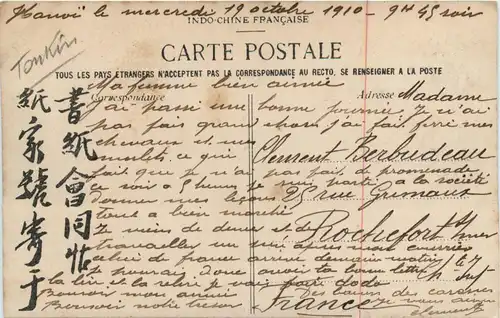 Hanoï le mercredi 19 octobre 1910 - 9H 45 soir
INDO-CHINE FRANÇAISE
Tonkin
CARTE POSTALE
TOUS LES PAYS ÉTRANGERS N'ACCEPTENT PAS LA CORRESPONDANCE AU RECTO, SE RENSEIGNER A LA POSTE
Correspondance
Adresse
Ma femme bien aimée
j'ai passé une bonne journée je n'ai
pas fait grand chose j'ai fait ferré mes
chevaux et mes
mulets ce qui
fait que je n'ai pas fait de promenade
ce soir à 5 heures je suis parti à la société
donner mes leçons
tout a bien marché
je viens de diner et de
travailler un peu après mon courrier
celui de france arrive demain matin
je pourrais donc avoir ta bonne lettre
la lire et la relire je vais faire dodo
Bonsoir mon aimée
Bonsoir notre trésor
Des baisers des caresses
je vous aime
Clement
Madame
Clement Berbudeau
25 rue Grimaux
Rochefort s/ mer
France
書紙會同帖
紙家號寄于